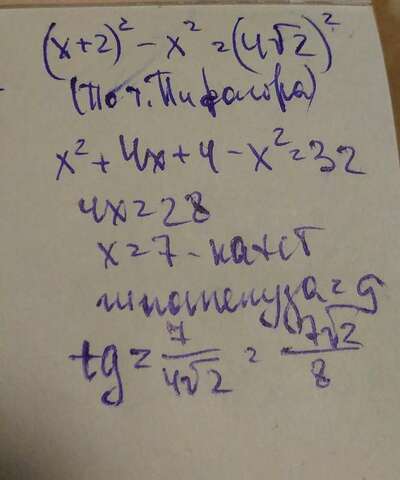 (x+2)² - x² = (4√2)²
(По т. Пифагора)
x² + 4x + 4 - x² = 32
4x = 28
x = 7 - катет
гипотенуза = 9
tg = 7/4√2 = 7√2/8